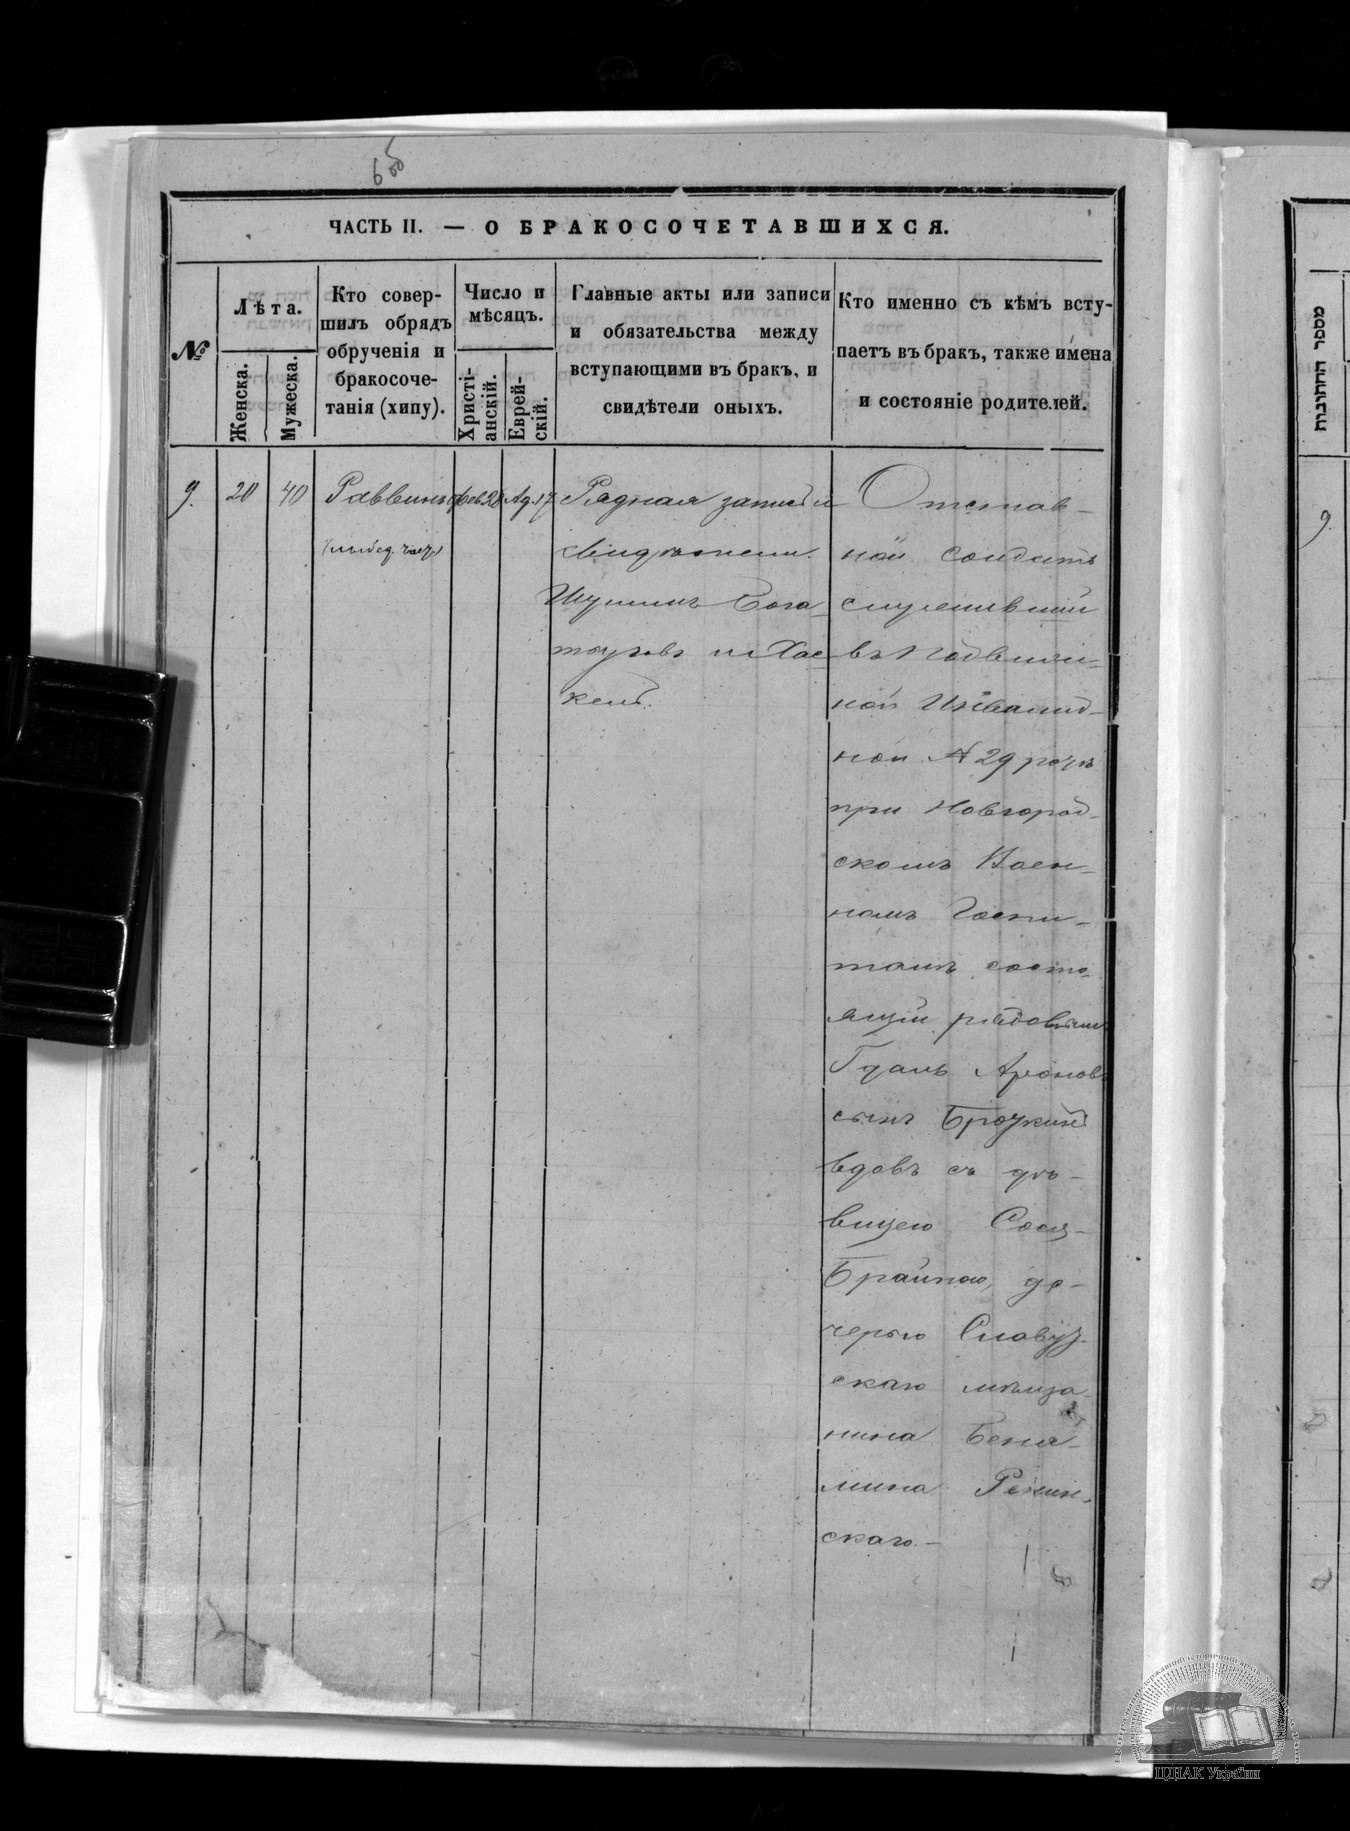 6об
ЧАСТЬ II. — О БРАКОСОЧЕТАВШИХСЯ.
№
Лѣта.
Женска.
Мужеска.
Кто совер-
шилъ обрядъ
обрученія и
бракосоче-
танія (хипу).
Число и
мѣсяцъ.
Христі-
анскій.
Еврей-
скій.
Главные акты или записи
и обязательства между
вступающими въ бракъ, и
свидѣтели оныхъ.
Кто именно съ кѣмъ всту-
паетъ въ бракъ, также имена
и состояніе родителей.
9.
20
40
Раввинъ
Фев 28
Ад. 17
Рядная запись и
свидѣтели
Шулимъ Бога-
тыръ и Хас-
кель.
Отстав-
ной солдатъ
служившій
въ
ной Инвалид-
ной № 29 ротѣ
при Новгород-
скомъ Воен-
номъ Госпи-
талѣ состо-
ящій рядовымъ
Гдаль Ароновъ
сынъ Броцкій
вдовъ съ дѣ-
вицею Сося-
Брайною, до-
черью Славут-
скаго мѣща-
нина Беня-
мина
скаго.—
9.
מספר החתונות
ЦДІАК України